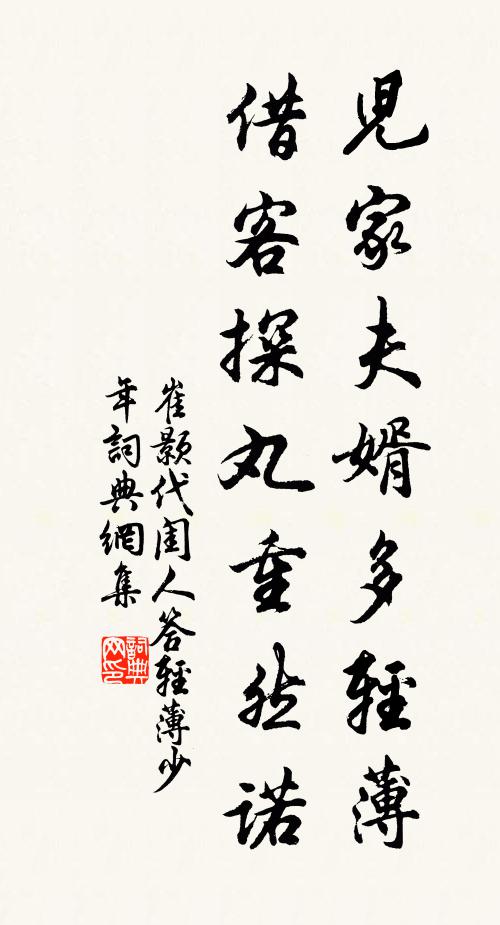 兒家夫婿多輕薄
借客探丸重然諾
崔顥代閨人答輕薄少
年詞典網集
詞典
网印